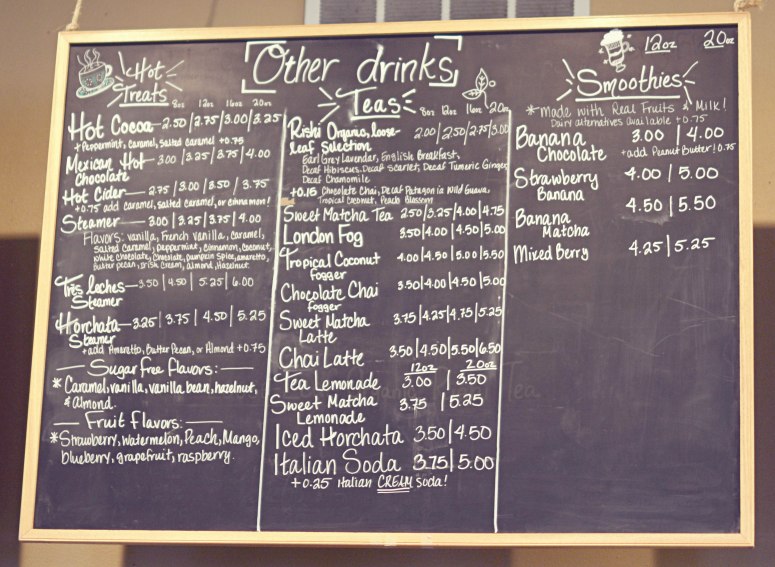 Other drinks
Hot
Treats
8oz 12oz 16oz 20oz
Hot Cocoa—2.50/2.75/3.00/3.25
+Peppermint, caramel, salted caramel +0.75
Mexican Hot 3.00/3.25/3.75/4.00
Chocolate
Hot Cider—2.75/3.00/3.50/3.75
+0.75 add caramel, salted caramel, or cinnamon!
Steamer—3.00/3.25/3.75/4.00
Flavors: vanilla, French vanilla, caramel,
salted caramel, peppermint, cinnamon, coconut,
white chocolate, chocolate, pumpkin spice, amaretto,
butter pecan, Irish Cream, almond, Hazelnut.
Tres leches—3.50/4.50/5.25/6.00
Steamer
Horchata—3.25/3.75/4.50/5.25
Steamer
+add Amaretto, Butter Pecan, or Almond +0.75
Sugar free Flavors:
*Caramel, vanilla, vanilla bean, hazelnut,
& Almond.
Fruit Flavors:
*Strawberry, watermelon, Peach, Mango,
blueberry, grapefruit, raspberry.
Teas
8oz 12oz 16oz 20oz
Rishi Organic, loose- 2.00/2.50/2.75/3.00
leaf Selection
Earl Grey Lavender, English Breakfast,
Decaf Hibiscus, Decaf Scarlet, Decaf Tumeric Ginger,
Decaf Chamomile
+0.15 Chocolate Chai, Decaf Patagonia Wild Guava,
Tropical Coconut, Peach Blossom
Sweet Matcha Tea 2.50/3.25/4.00/4.75
London Fog 3.50/4.00/4.50/5.00
Tropical Coconut 4.00/4.50/5.00/5.50
Fogger
Chocolate Chai 3.50/4.00/4.50/5.00
Fogger
Sweet Matcha 3.75/4.25/4.75/5.25
Latte
Chai Latte 3.50/4.50/5.50/6.50
12oz 20oz
Tea Lemonade 3.00/3.50
Sweet Matcha 3.75/5.25
Lemonade
Iced Horchata 3.50/4.50
Italian Soda 3.75/5.00
+0.25 Italian CREAM soda!
12oz 20oz
Smoothies
*made with Real Fruits & Milk!
Dairy alternatives available +0.75
Banana 3.00/4.00
Chocolate +add Peanut Butter/0.75
Strawberry 4.00/5.00
Banana
Banana 4.50/5.50
Matcha
Mixed Berry 4.25/5.25